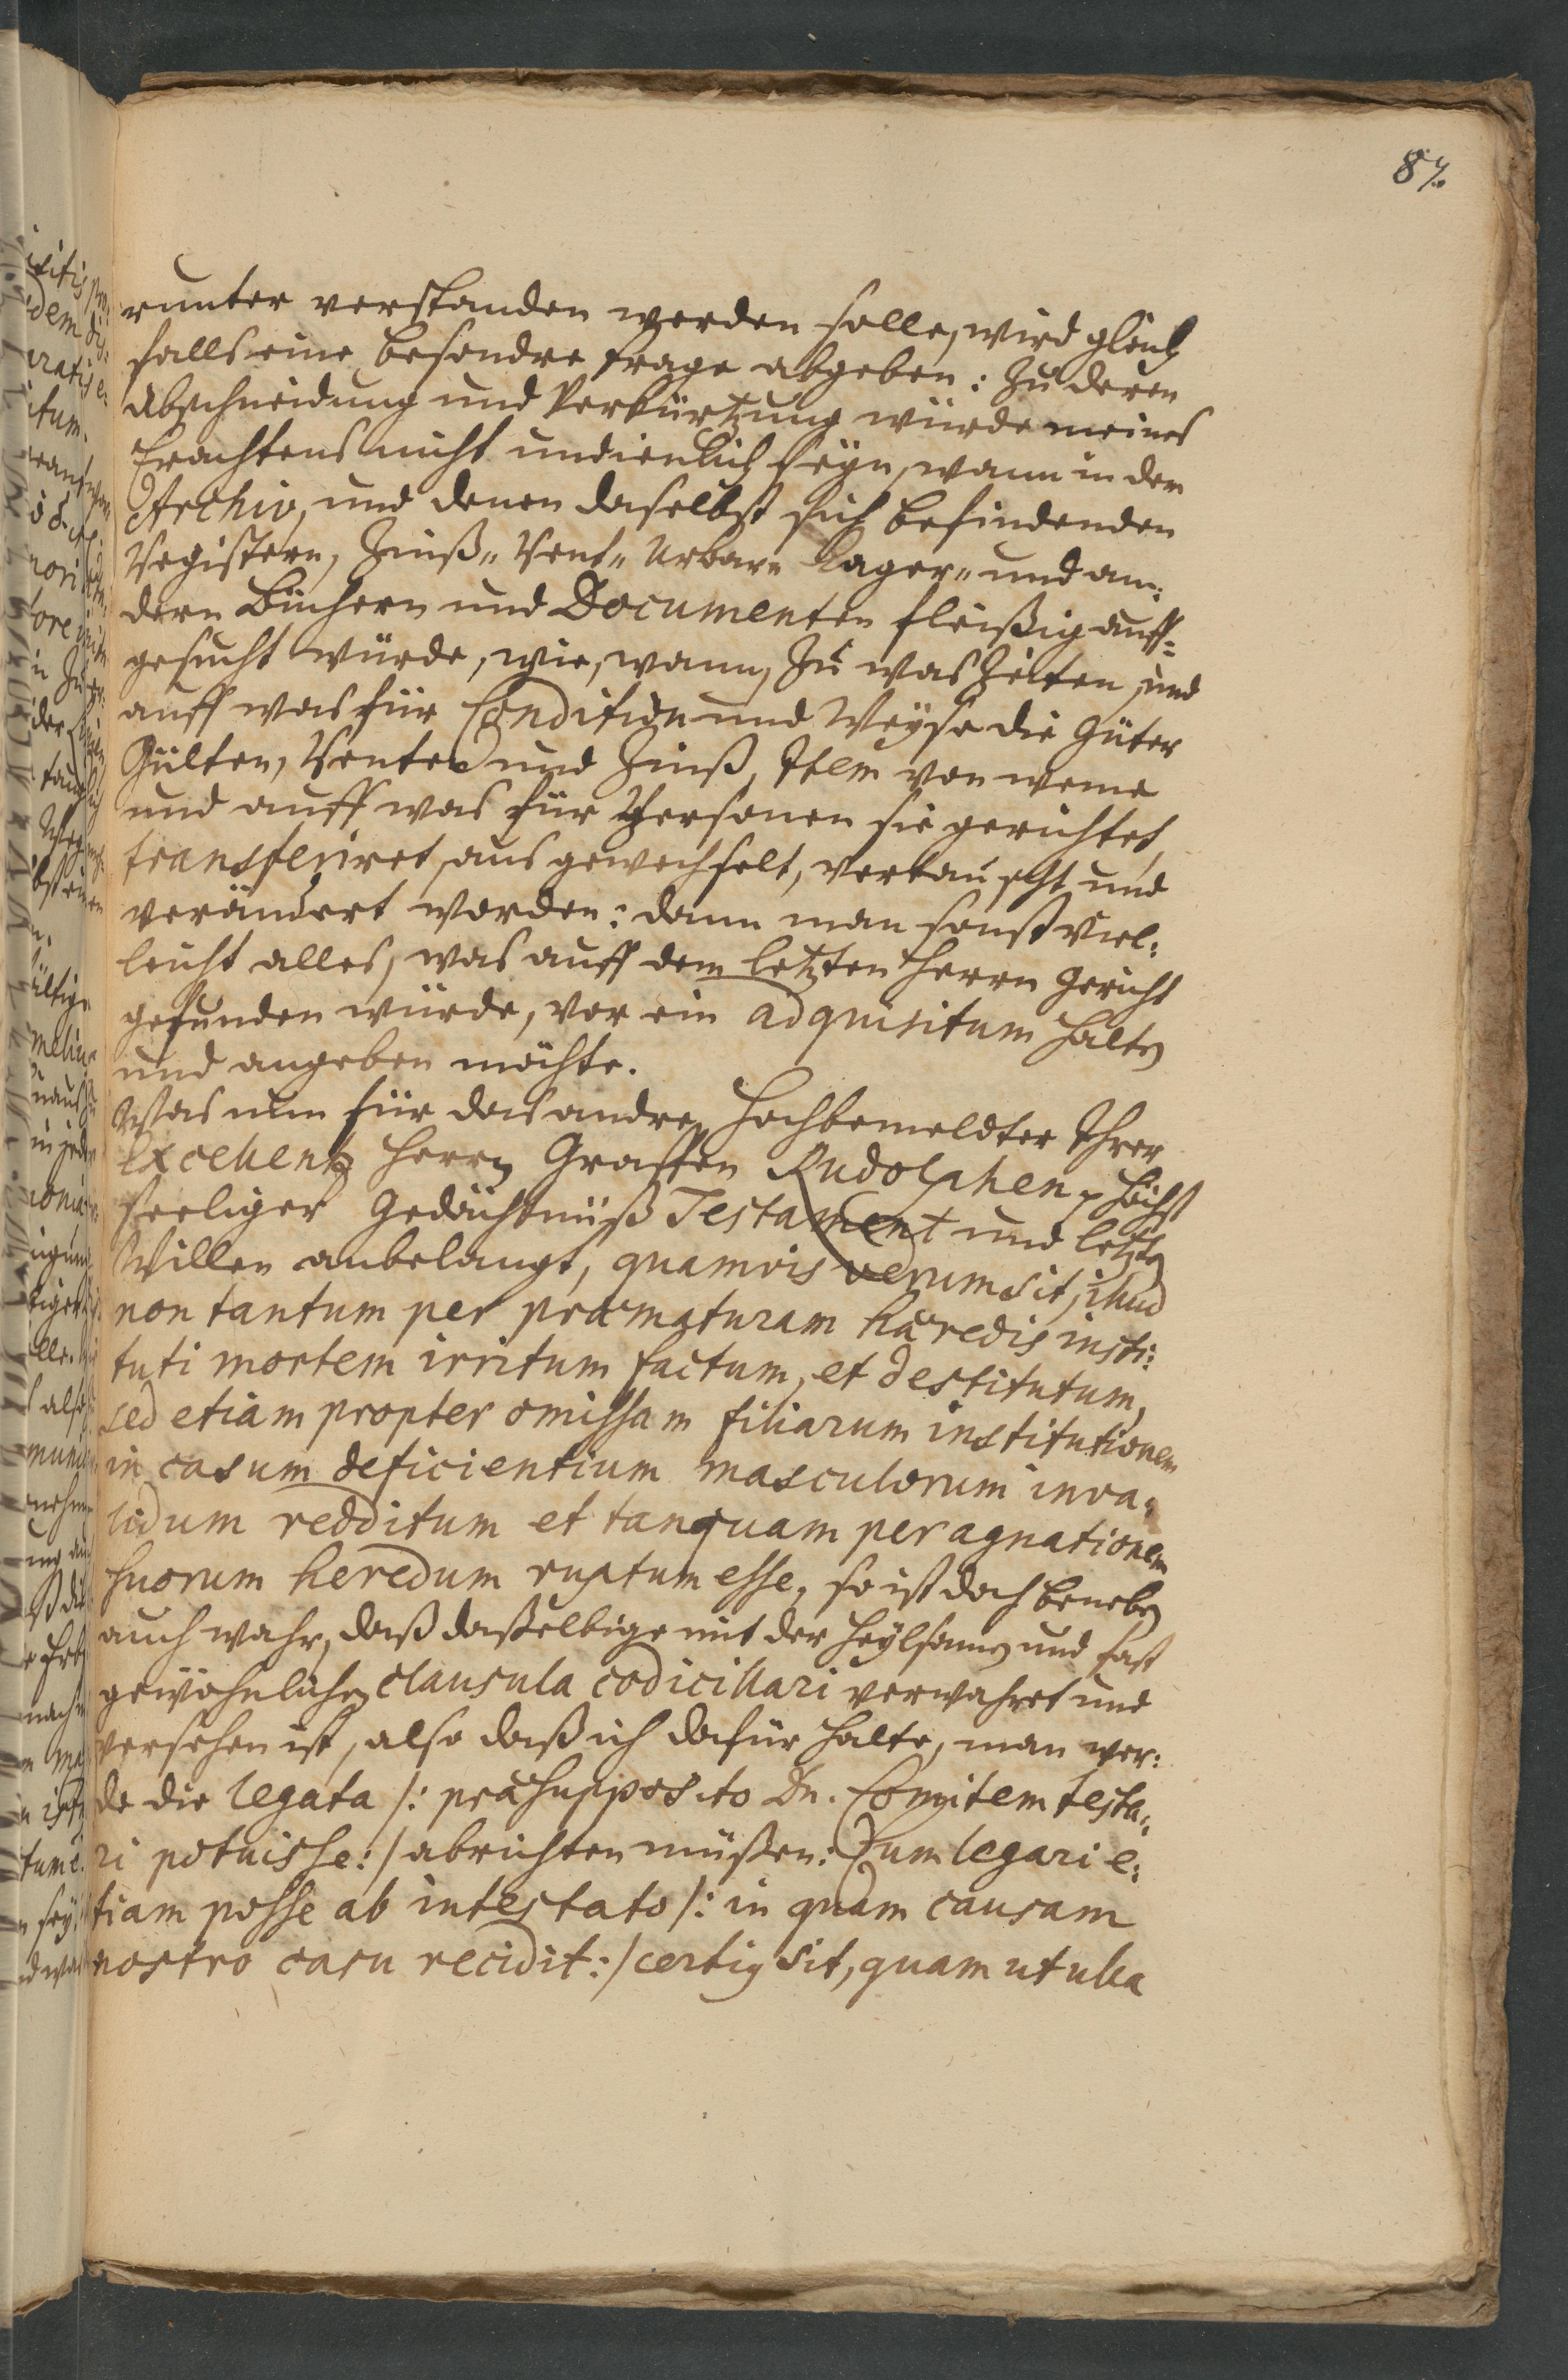 87.
runter verstanden werden solle, wird gleich
falls eine besondre frage abgeben: Zu deren
abschneidung und Verkürtzung würde meines
Erachtens nicht undienlich seyn, wann in dem
Archiv, und denen daselbst sich befindenden
Registern, Zinß- Rent- Urbar- Lager- und an:
dern Büchern und Documenten fleißig auff-
gesucht würde, wie, wann, Zu was Zeiten, und
auff was für Condition und Weyse die Güter
Gülten, Renten und Zinß, Item von weme
und auff was für Personen sie gerichtet,
transferiret, aus gewechselt, vertauscht und
verändert worden: dann man sonst viel:
leicht alles, was auff dem letzten Herrn Gericht
gefunden würde, vor ein adquisitum halten
und angeben möchte.
Was nun für das andre, Hochbemeldter Ihrer
Excellentz Herrn Graffen Rudolphen, Höchst
seeliger Gedächtnüß Testament und letzten
Willen anbelangt, quamvis verum sit, illud
non tantum per præmaturam hæredis insti:
tuti mortem irritum factum, et destitutum,
sed etiam propter omissam filiarum institutionem
in casum deficientium masculorum inva-
lidum redditum et tanquam per agnationem
suorum heredum ruptum esse, so ist doch beneben
auch wahr, daß daßelbige mit der heylsamen und fast
gewöhnlichen clausula codicillari verwahret und
versehen ist, also daß ich dafür halte, man wer:
de die legata /: præsupposito Dn. Comitem testa:
ri potuisse :/ abrichten müßen: Cum legari e:
tiam posse ab intestato /: in quam causam
nostro casu recidit :/ certig sit, quam ut ulla